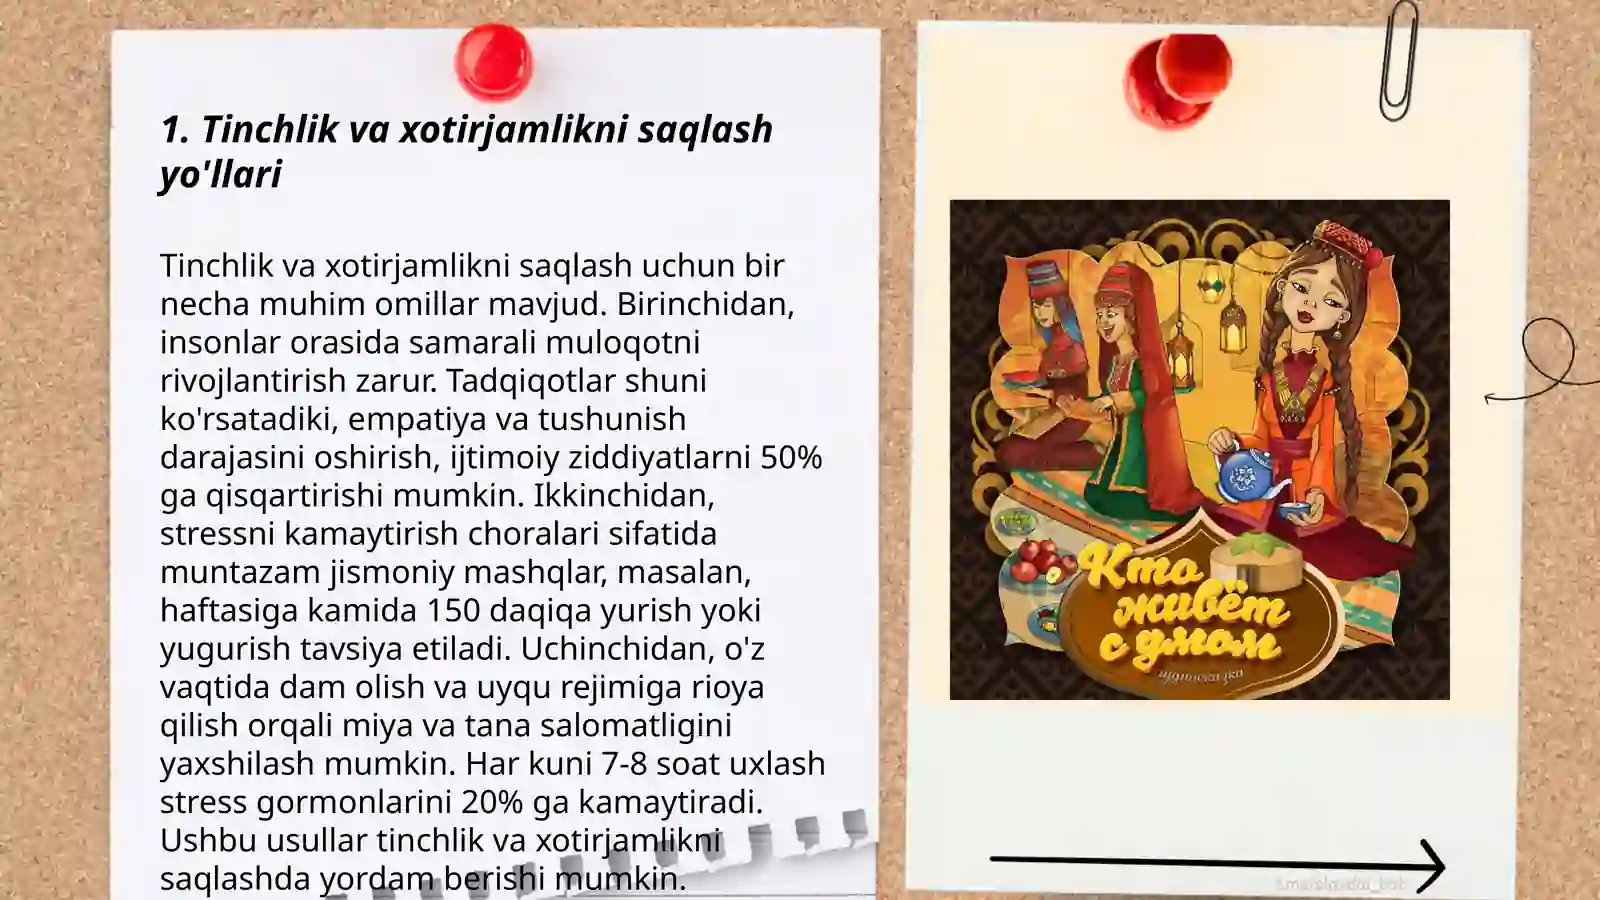 1. Tinchlik va xotirjamlikni saqlash
yo'llari
Tinchlik va xotirjamlikni saqlash uchun bir
necha muhim omillar mavjud. Birinchidan,
insonlar orasida samarali muloqotni
rivojlantirish zarur. Tadqiqotlar shuni
ko'rsatadiki, empatiya va tushunish
darajasini oshirish, ijtimoiy ziddiyatlarni 50%
ga qisqartirishi mumkin. Ikkinchidan,
stressni kamaytirish choralari sifatida
muntazam jismoniy mashqlar, masalan,
haftasiga kamida 150 daqiqa yurish yoki
yugurish tavsiya etiladi. Uchinchidan, o'z
vaqtida dam olish va uyqu rejimiga rioya
qilish orqali miya va tana salomatligini
yaxshilash mumkin. Har kuni 7-8 soat uxlash
stress gormonlarini 20% ga kamaytiradi.
Ushbu usullar tinchlik va xotirjamlikni
saqlashda yordam berishi mumkin.
Кто
живёт
с умом
аудиосказка